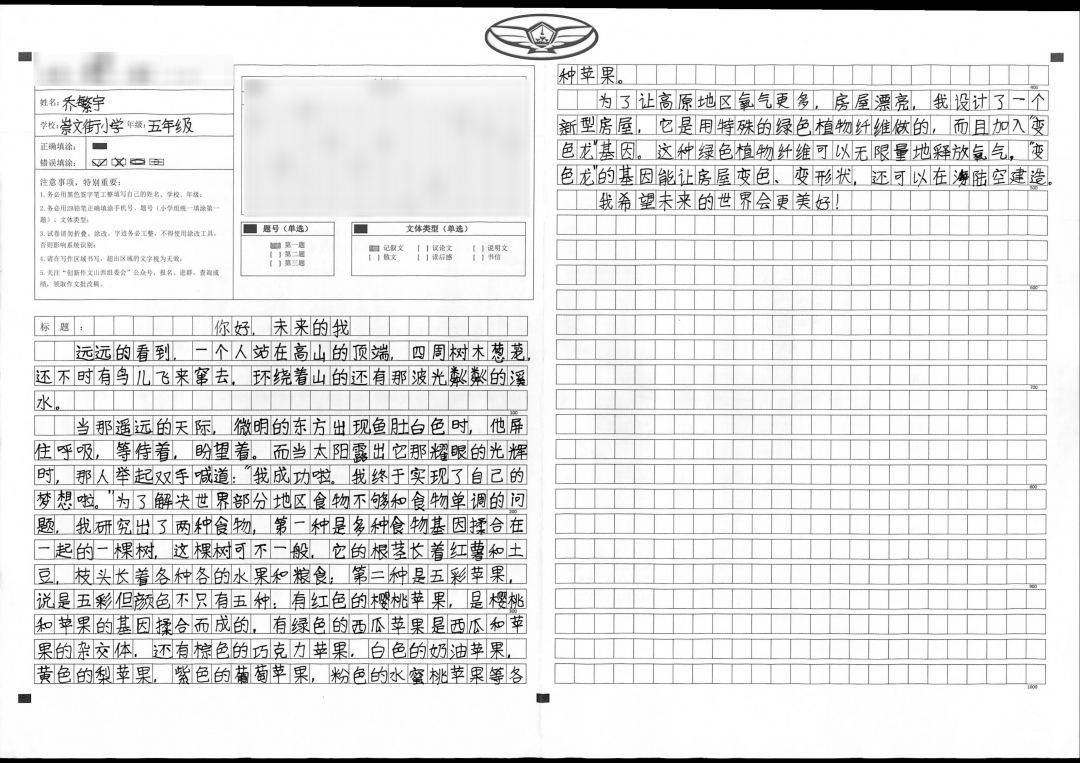 姓名：乔繁宇
学校：崇文街小学 年级：五年级
正确填涂：
错误填涂：
注意事项，特别重要：
1.务必用黑色签字笔工整填写自己的姓名、学校、年级；
2.务必用2B铅笔正确填涂手机号、题号（小学组统一填涂第一
题）、文体类型；
3.试卷请勿折叠、涂改，字迹务必工整，不得使用涂改工具，
否则影响系统识别；
4.请在写作区域书写，超出区域的文字视为无效；
5.关注“创新作文山西组委会”公众号，报名、进群、查询成
绩、领取作文批改稿。
题号（单选）
第一题
[ ] 第二题
[ ] 第三题
文体类型（单选）
记叙文 [ ] 议论文 [ ] 说明文
[ ] 散文 [ ] 读后感 [ ] 书信
标题：你好，未来的我
远远的看到，一个人站在高山的顶端，四周树木葱茏，
还不时有鸟儿飞来窜去，环绕着山的还有那波光粼粼的溪
水。
100
当那遥远的天际，微明的东方出现鱼肚白色时，他屏
住呼吸，等待着，盼望着。而当太阳露出它那耀眼的光辉
时，那人举起双手喊道：“我成功啦。我终于实现了自己的
梦想啦。”为了解决世界部分地区食物不够和食物单调的问
200
题，我研究出了两种食物，第一种是多种食物基因揉合在
一起的一棵树，这棵树可不一般，它的根茎长着红薯和土
豆，枝头长着各种各的水果和粮食；第二种是五彩苹果，
说是五彩但颜色不只有五种：有红色的樱桃苹果，是樱桃
300
和苹果的基因揉合而成的，有绿色的西瓜苹果是西瓜和苹
果的杂交体，还有棕色的巧克力苹果，白色的奶油苹果，
黄色的梨苹果，紫色的葡萄苹果，粉色的水蜜桃苹果等各
种苹果。
400
为了让高原地区氧气更多，房屋漂亮，我设计了一个
新型房屋，它是用特殊的绿色植物纤维做的，而且加入“变
色龙”基因。这种绿色植物纤维可以无限量地释放氧气，“变
色龙”的基因能让房屋变色、变形状，还可以在海陆空建造。
500
我希望未来的世界会更美好！
600
700
800
900
1000